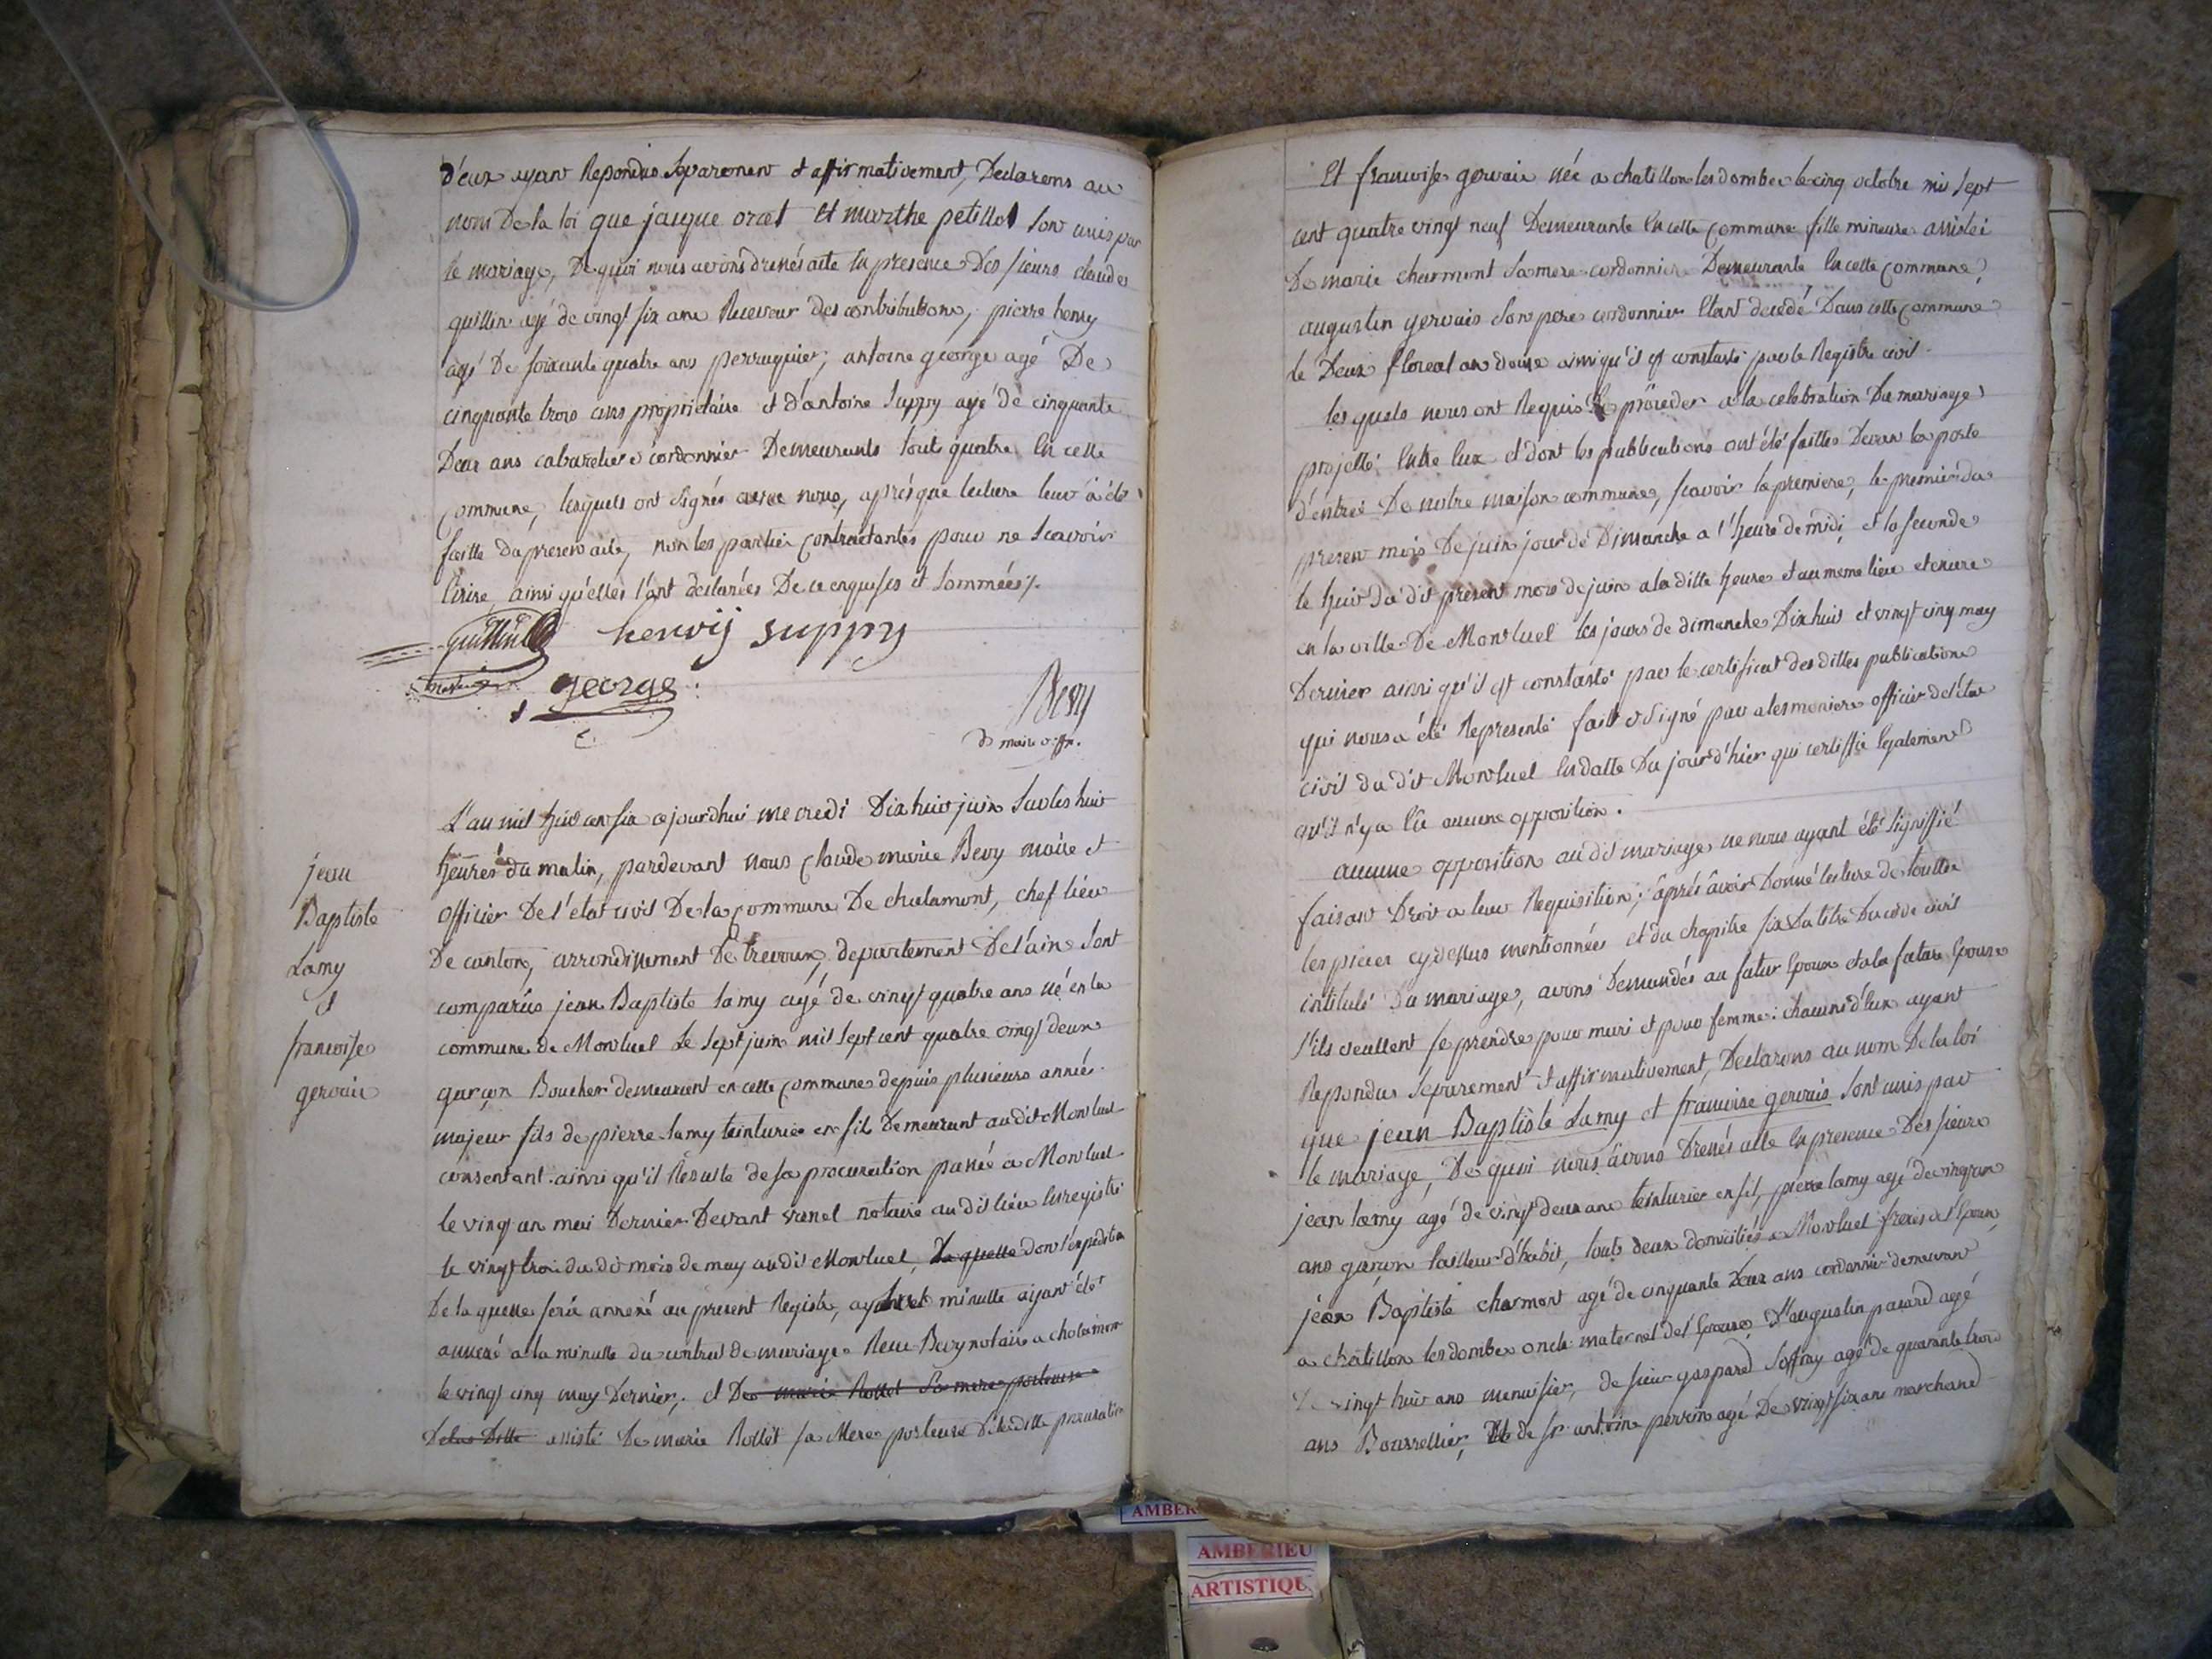 d'eux ayant Repondus Separement et affirmativement, Declarons au
nom De la loi que jaque orcet et marthe petillot sont unis par
le mariage, De quoi nous avons dressés acte En presence Des sieurs claude
quillin agé de vingt six ans Receveur des contributions, pierre henry
agé De soixante quatre ans perruquier; antoine george agé De
cinquante trois ans propriétaire et d'antoine Suppy agé de cinquante
Deux ans cabaretier & cordonnier Demeurants touts quatre En cette
commune, lesquels ont signés avec nous, après que lecture leur à été
faitte du present acte, non les parties contractantes pour ne Scavoir
Ecrire ainsi qu'elles l'ont declarées De ce enquises et Sommées ./.
quillin henrij suppy
george
Bevy
maire offr.
jean
Baptiste
Lamy
et
francoise
gervais
L'an mil huit cent six ajourdhui mecredi Dix huit juin Sur les huit
heures du matin, pardevant nous claude marie Bevy maire et
officier De l'etat civil De la commune De chalamont, chef lieu
De canton, arrondissement De trevoux, departement De l'ain sont
comparus jean Baptiste Lamy agé de vingt quatre ans né en la
commune de Montluel Le Sept juin mil sept cent quatre vingt deux
garçon Boucher demeurant en cette commune depuis plusieurs années
majeur fils de pierre Lamy teinturier en fil Demeurant au dit Montluel
consentant ainsi qu'il Resulte de sa procuration passée a Montluel
le vingt un mai Dernier Devant notaire au dit lieu Enregistré
le vingt trois du dit mois de may au dit Montluel, La quelle dont l'expedition
De la quelle sera annexé au present Registre, minutte ayant été
annexé a la minutte du contrat de mariage Recu Bevy notaire a chalamont
le vingt cinq may Dernier, et De marie Rollet Sa mere porteuse
De la Ditte assisté De marie Rollet sa Mere porteuse De la ditte procuration
Et francoise gervais née a chatillon les dombes le cinq octobre mil sept
cent quatre vingt neuf Demeurante En cette commune fille mineure assistée
De marie charmont Sa mere cordonniere Demeurante En cette commune,
augustin gervais Son pere cordonnier Etant decedé Dans cette commune
Le Deux floreal an douze ainsi qu'il est constaté par le Registre civil.
les quels nous ont Requis De proceder a la celebration Du mariage
projetté Entre Eux et dont les publications ont été faittes Devant la porte
d'entrée De notre maison commune, scavoir la premiere, le premier du
present mois De juin jour de Dimanche a l'heure de midi, et la seconde
le huit du dit present mois de juin a la ditte heure et au meme lieu et encore
en la ville De Montluel les jours de dimanche Dix huit et vingt cinq may
Dernier ainsi qu'il est constaté par le certificat des dittes publications
qui nous a été Representé fait & signé par officier de l'état
civil du dit Montluel En datte Du jour d'hier qui certiffie Egalement
qu'il n'y a Eû aucune opposition.
aucune opposition au dit mariage ne nous ayant été signiffié
faisant Droit a leur Requisition; après avoir Donné lecture de touttes
les pieces cy dessus mentionnées et du chapitre six Du titre Du code civil
intitulé Du mariage, avons Demandés au futur Epoux et a la future Epouse
s'ils veullent se prendre pour mari et pour femme: chacuns d'Eux ayant
Repondus Separement et affirmativement, Declarons au nom De la loi
que jean Baptiste Lamy et francoise gervais Sont unis par
le mariage, De quoi nous avons Dressés acte En presence Des sieurs
jean lamy agé de vingt deux ans teinturier en fil, pierre lamy agé de vingt un
ans garçon tailleur d'habit, touts deux domiciliés a Montluel freres de l'Epoux,
jean Baptiste charmont agé de cinquante Deux ans cordonnier demeurant
a chatillon les dombes oncle maternel de l'Epouse, D'augustin pacard agé
De vingt huit ans menuisier, de sieur gaspard Soffray agé de quarante trois
ans Bourrellier, de sr. antoine perrin agé De vingt six ans marchand
AMBER
AMBERIEU
ARTISTIQU